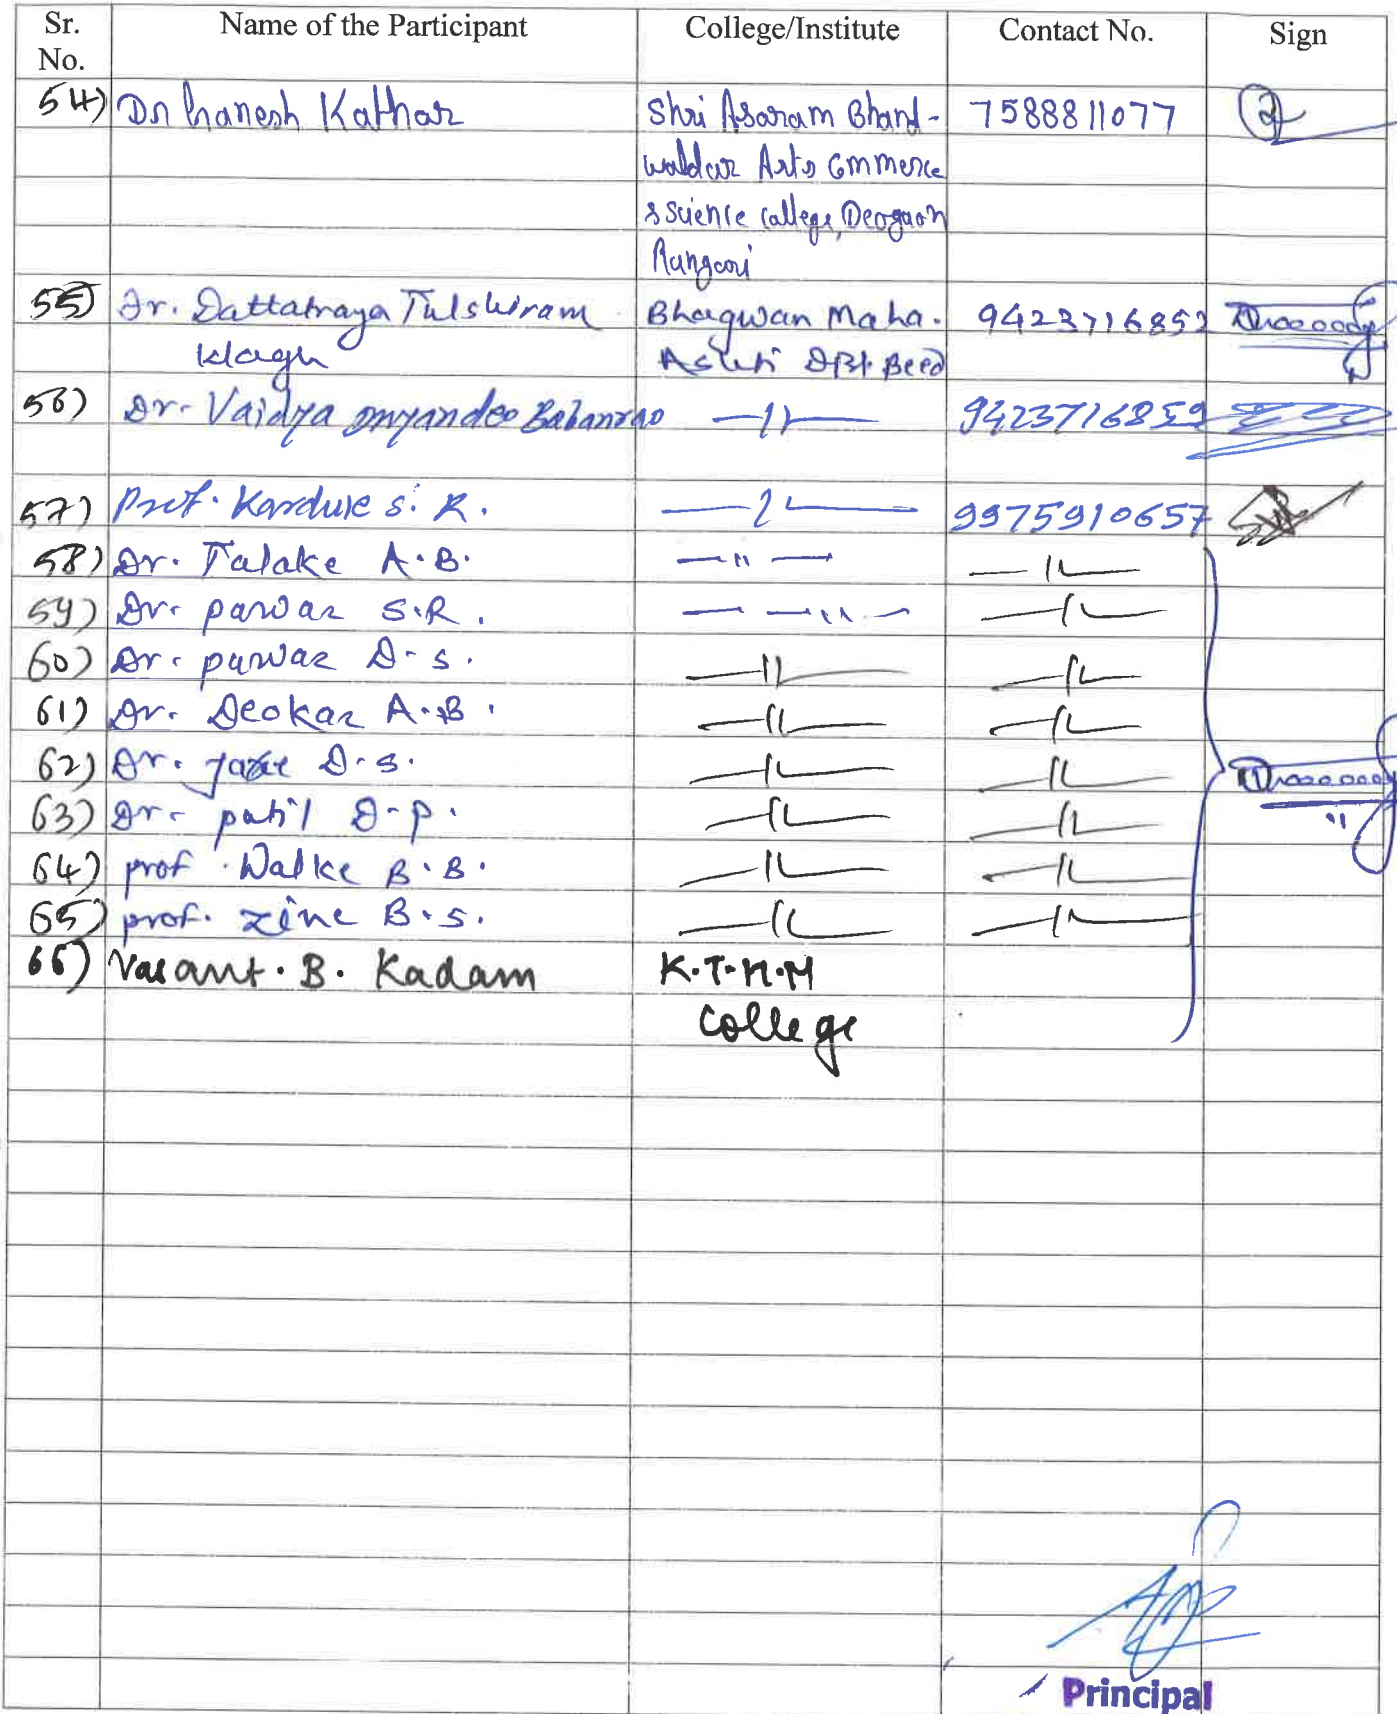 Sr. No. Name of the Participant College/Institute Contact No. Sign
54) Dr Ganesh Kathar Shri Asaram Bhand- 7588811077
waldar Arts Commerce
& Science College, Deogaon
Rangari
55) Dr. Dattatraya Tulshiram Bhagwan Maha. 9423716852
Wagh Ashti Dist Beed
56) Dr. Vaidya Dnyandeo Babanrao —11— 9423716852
57) Prof. Kardule S. R. —11— 9975910657
58) Dr. Talake A.B. —11— —11—
59) Dr. pawar S.R. —11— —11—
60) Dr. pawar D.S. —11— —11—
61) Dr. Deokar A.B. —11— —11—
62) Dr. D.S. —11— —11—
63) Dr. patil D.P. —11— —11—
64) prof. Walke B.B. —11— —11—
65) prof. Zine B.S. —11— —11—
66) Vasant. B. Kadam K.T.H.M
College
Principal